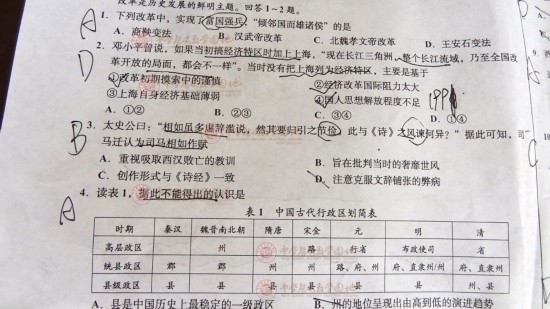 改革是历史发展的鲜明主题。回答1~2题。
A 1. 下列改革中，实现了“富国强兵，“倾邻国而雄诸侯”的是
A. 商鞅变法 B. 汉武帝改革 C. 北魏孝文帝改革 D. 王安石变法
D 2. 邓小平曾说，如果当初搞经济特区时加上上海，“现在长江三角洲，整个长江流域，乃至全国改
革开放的局面，都会不一样”。当时没有把上海列为经济特区，主要是基于
①改革初期摸索中的谨慎 ②经济改革国际阻力太大
③上海自身经济基础薄弱 ④国人思想解放程度不足
A. ①② B. ②③ C. ③④ D. ①④
B 3. 太史公曰：“相如虽多虚辞滥说，然其要归引之节俭，此与《诗》之风谏何异？”据此可知，司
马迁认为司马相如作赋
A. 重视吸取西汉败亡的教训 B. 旨在批判当时的奢靡世风
C. 创作形式与《诗经》一致 D. 注意克服文辞铺张的弊病
A 4. 读表1，据此不能得出的认识是
表1 中国古代行政区划简表
时期 秦汉 魏晋南北朝 隋唐 宋金 元 明 清
高层政区 州 路 行省 布政使司 省
统县政区 郡 郡 州 州 路、府、州 府、直隶州/州 府、直隶州
县级政区 县 县 县 县 县 县 州、县
A. 县是中国历史上最稳定的一级政区 B. 州的地位呈现出由高到低的演进趋势